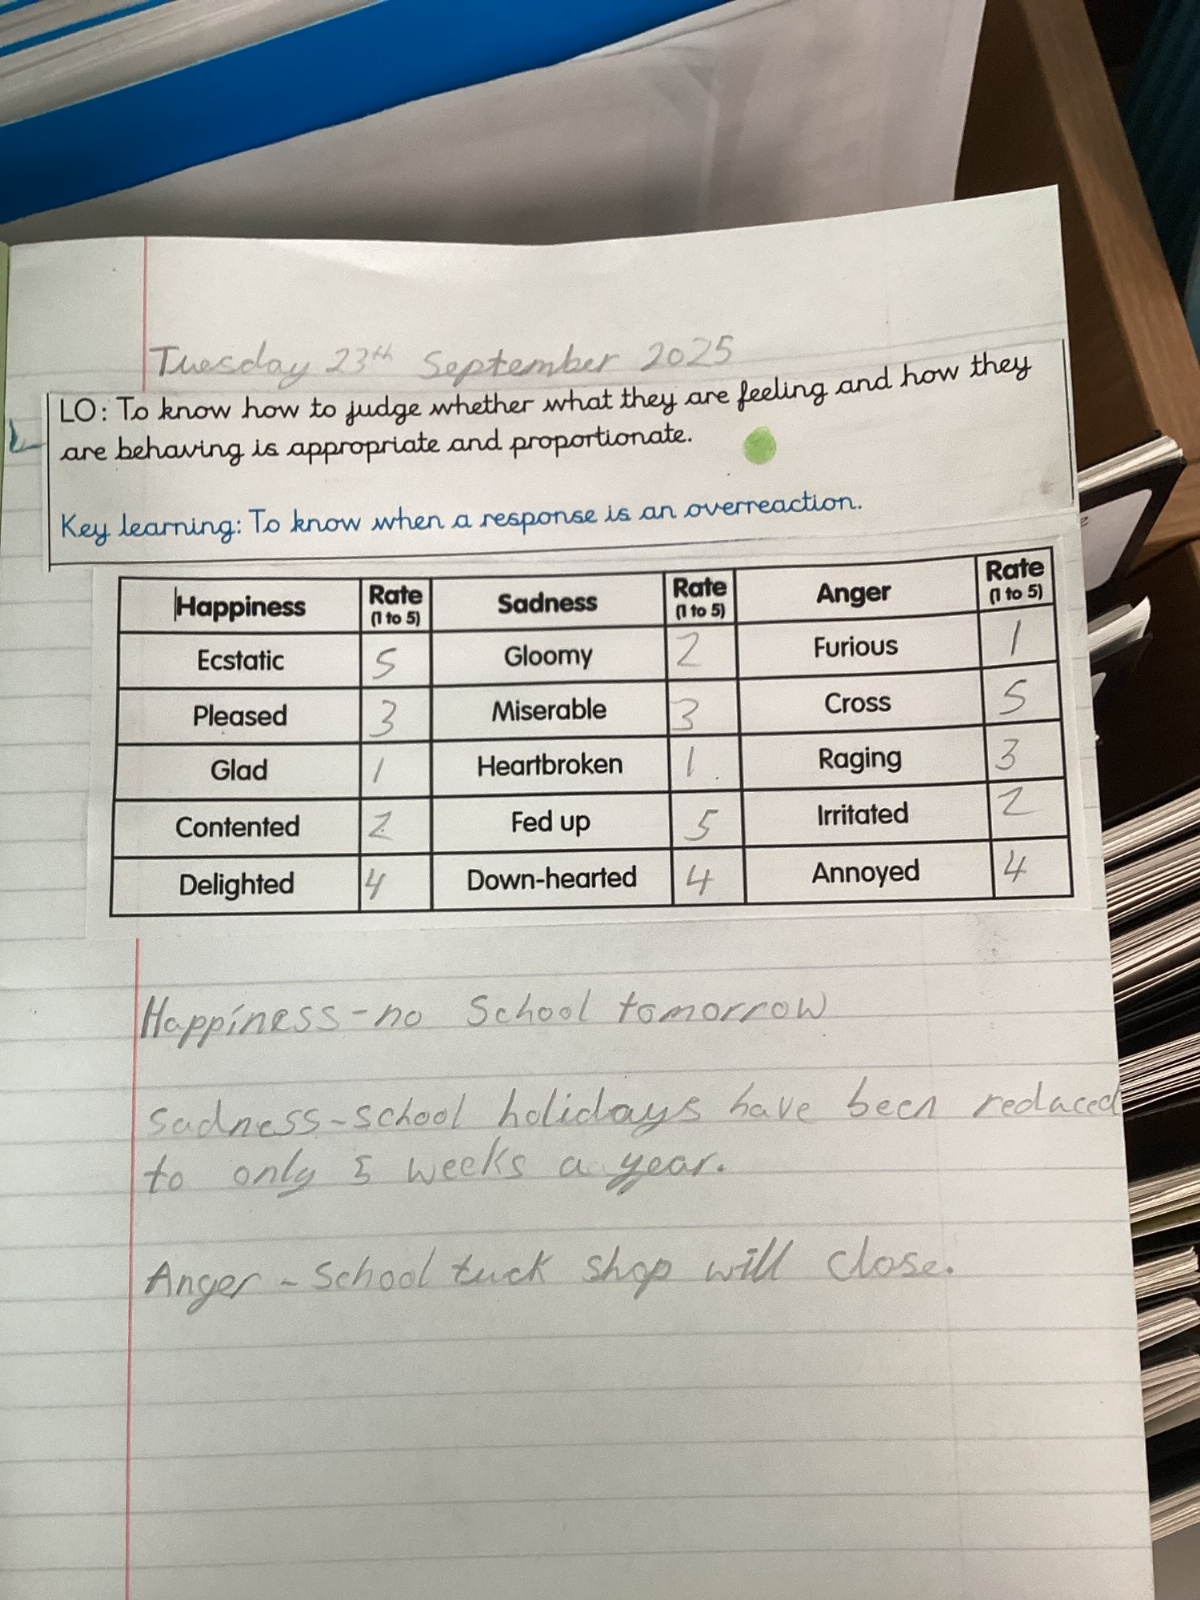 Tuesday 23th September 2025
LO: To know how to judge whether what they are feeling and how they
are behaving is appropriate and proportionate.
Key learning: To know when a response is an overreaction.
Happiness Rate (1 to 5) Sadness Rate (1 to 5) Anger Rate (1 to 5)
Ecstatic 5 Gloomy 2 Furious 1
Pleased 3 Miserable 3 Cross 5
Glad 1 Heartbroken 1 Raging 3
Contented 2 Fed up 5 Irritated 2
Delighted 4 Down-hearted 4 Annoyed 4
Happiness - no School tomorrow
Sadness - school holidays have been reduced
to only 5 weeks a year.
Anger - School tuck shop will close.